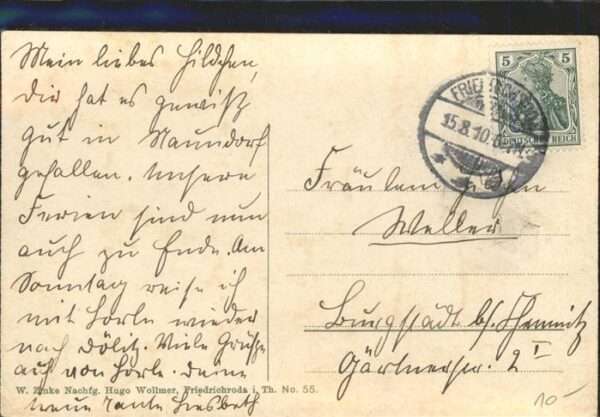 Mein liebes Hildchen,
Dir hat es gewiß
gut in Naundorf
gefallen. Unsere
Ferien sind nun
auch zu Ende. Am
Sonntag reise ich
mit Lorle wieder
nach Dölitz. Viele Grüße
auch von Lorle. Deine
treue Tante Liesbeth
W. Zinke Nachfg. Hugo Wollmer, Friedrichroda i. Th. No. 55.
5 5
DEUTSCHES REICH
15.8.10.
Fräulein
Weller
Burgstädt b/Chemnitz
Gärtnerstr. 2 I
10-